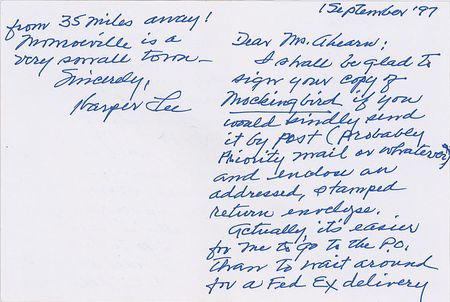 1 September '97
Dear Ms. Ahearn:
I shall be glad to
sign your copy of
Mockingbird if you
would kindly send
it by post (probably
Priority mail or whatever)
and enclose an
addressed, stamped
return envelope.
Actually, it's easier
for me to go to the P.O.
than to wait around
for a Fed Ex delivery
from 35 miles away!
Monroeville is a
very small town—
Sincerely,
Harper Lee